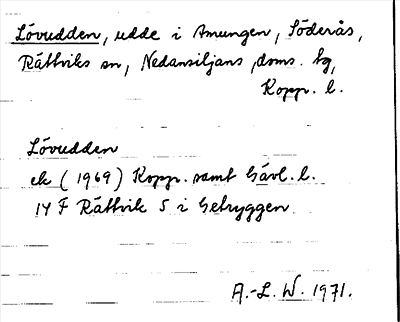 Lövudden, udde i Amungen, Söderås,
Rättviks sn, Nedansiljans doms. tg,
Kopp. l.
Lövudden
ek (1969) Kopp. samt Gävl. l.
14 F Rättvik S i Getryggen
A.-L. W. 1971.